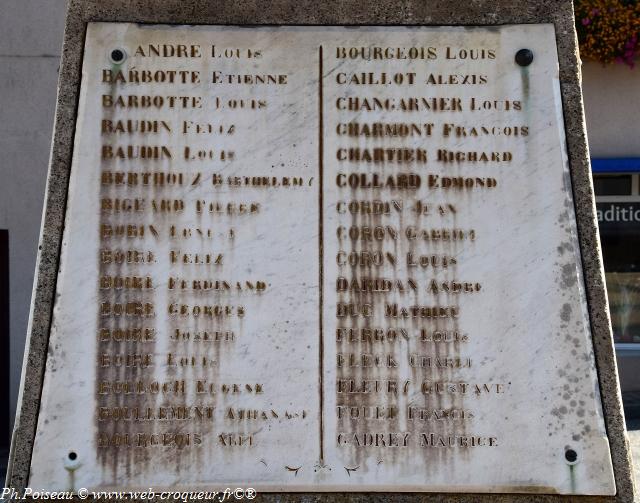 ANDRE LOUIS
BARBOTTE ETIENNE
BARBOTTE LOUIS
BAUDIN FELIX
BAUDIN LOUIS
BERTHOUX BARTHELEMY
BIGEARD PIERRE
BOBIN ERNEST
BOIRE FELIX
BOIRE FERDINAND
BOIRE GEORGES
BOIRE JOSEPH
BOIRE LOUIS
BOLLOCH EUGENE
BOULLEMENT ATHANASE
BOURGEOIS ABEL
BOURGEOIS LOUIS
CAILLOT ALEXIS
CHANGARNIER LOUIS
CHARMONT FRANCOIS
CHARTIER RICHARD
COLLARD EDMOND
CORDIN JEAN
CORON GABRIEL
CORON LOUIS
DARIDAN ANDRE
DUC MATHIEU
FERRON LOUIS
FLECK CHARLES
FLEURY GUSTAVE
FOURE FRANCIS
GADREY MAURICE
aditio
Ph.Poiseau © www-web-croqueur.fr ©®